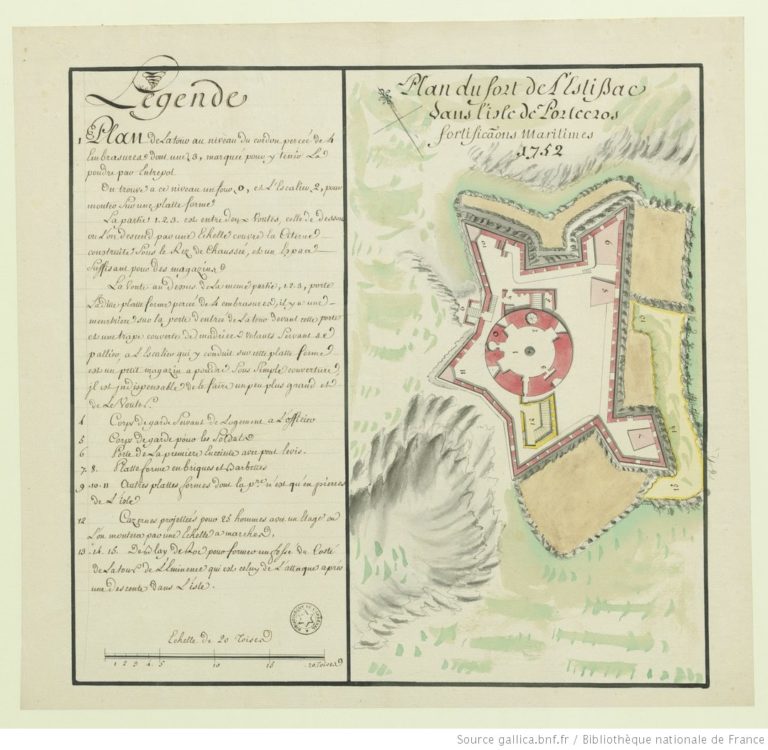 Légende
1 Plan de la tour au niveau du cordon percée de 4
Embrasures dont une, 3, marquée pour y tenir La
poudre par Entrepol.
On trouve a ce niveau un four 0, et L'Escalier 2, pour
monter sur une platte forme
La partie 1. 2. 3. est entre deux Voutes, celle de dessous
ou L'on descend par une Echelle couvre la Citerne
construite sous le Rez de Chaussée, et un Espace
suffisant pour des magazins
La Voute au dessus de La meme partie, 1. 2. 3, porte
Ladite platte forme percée de 4 embrasures, il y a une
meurtriere sur la porte d'entrée de La tour devant cette porte
est une trape couverte de madriers volants servant de
pallier, a L'Escalier qui y conduit sur cette platte forme
est un petit magazin a poudre sous simple couverture
il est indispensable de le faire un peu plus grand et
de Le Vouter.
4 Corps de garde servant de Logement a L'officier
5 Corps de garde pour les Soldats
6 Porte de La premiere Enceinte avec pont levis.
7. 8. Platte forme en briques et Barbettes
9. 10. 11 Autres plattes formes dont le n'est qu'en pierres
de L'isle
12 Cazernes projettées pour 25 hommes avec un Etage ou
L'on montera par une Echelle a marches,
13. 14. 15. Deblay de Roc pour former un fossé du Costé
de La tour de L'Eminence qui est celuy de L'attaque apres
une descente dans L'isle.
Echelle de 20 Toises
1 2 3 4 5 10 15 20 Toises
Plan du fort de L'Estissac
dans l'isle de Portecros
fortifica̅ons Maritimes
1752
Source gallica.bnf.fr / Bibliothèque nationale de France